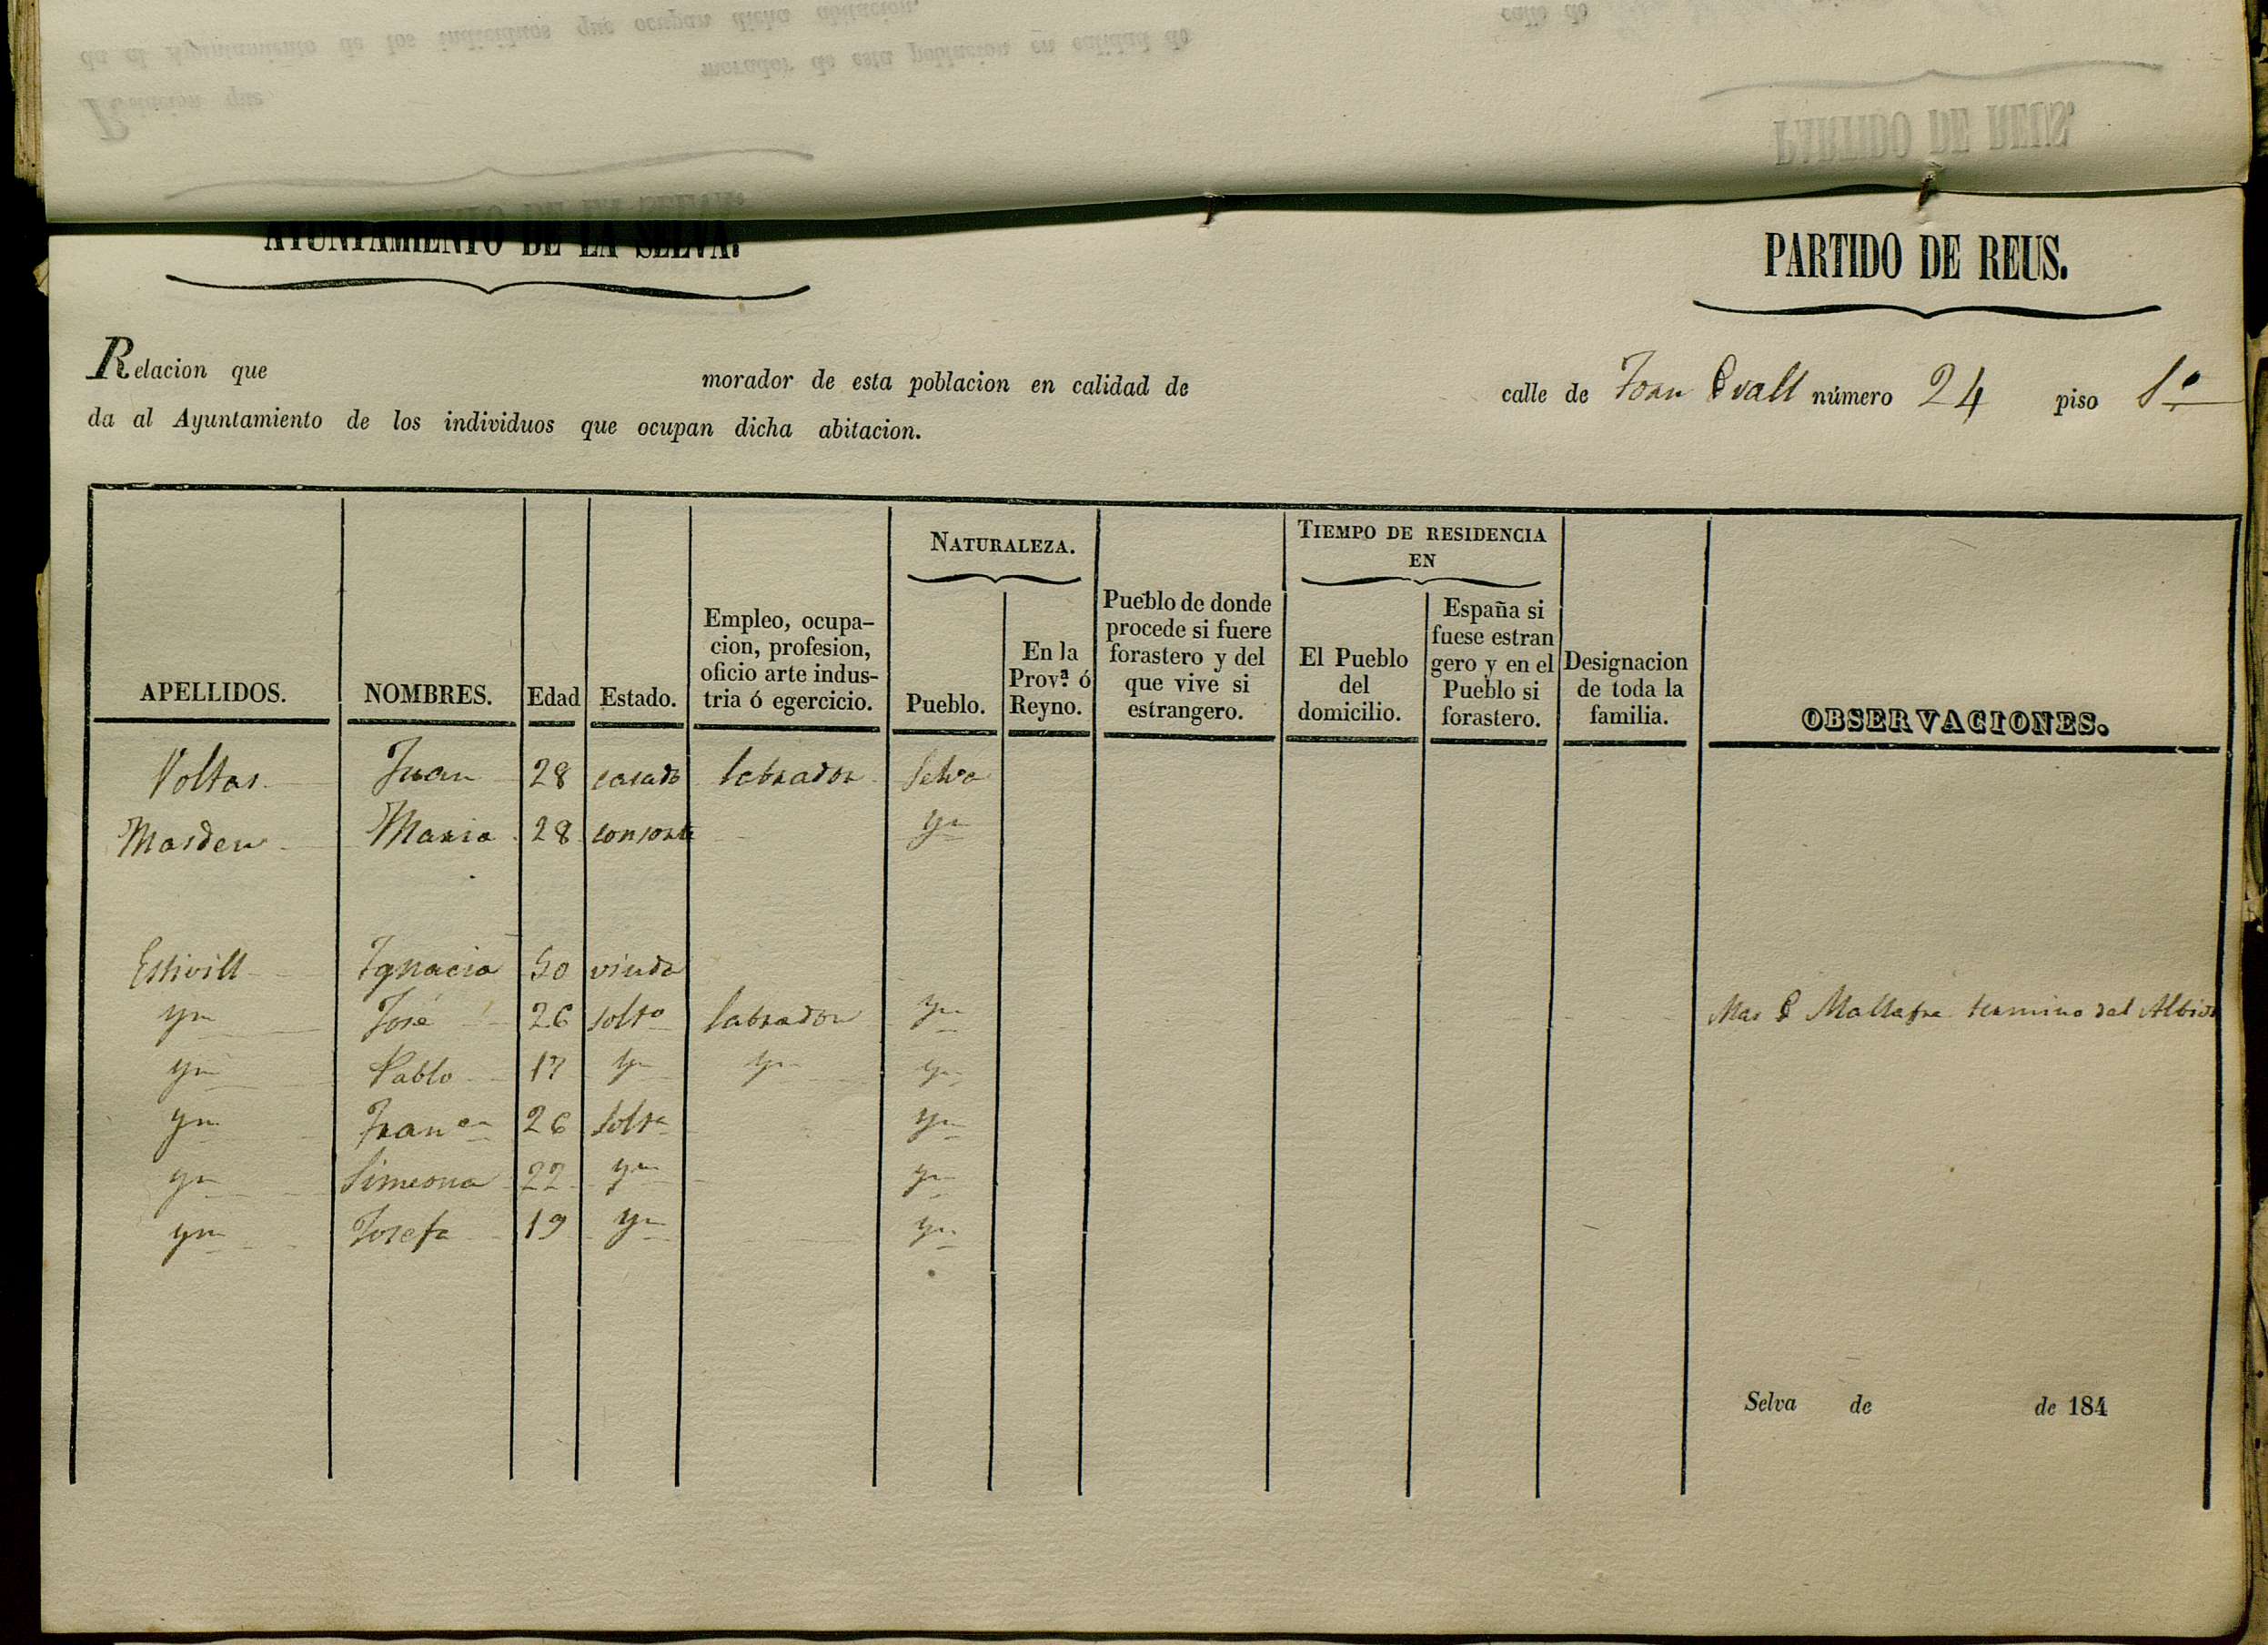 AYUNTAMIENTO DE LA SELVA.
PARTIDO DE REUS.
Relacion que morador de esta poblacion en calidad de calle de número 24 piso 1º
da al Ayuntamiento de los individuos que ocupan dicha abitacion.
NATURALEZA.
TIEMPO DE RESIDENCIA
EN
APELLIDOS.
NOMBRES.
Edad
Estado.
Empleo, ocupa-
cion, profesion,
oficio arte indus-
tria ó egercicio.
Pueblo.
En la
Prov.ª ó
Reyno.
Pueblo de donde
procede si fuere
forastero y del
que vive si
estrangero.
El Pueblo
del
domicilio.
España si
fuese estran
gero y en el
Pueblo si
forastero.
Designacion
de toda la
familia.
OBSERVACIONES.
Voltas Juan 28 casado labrador Selva
Masdeu Maria 28 consorte yn
Estivill Ignacia 50 viuda
yn José 26 solto labrador yn Mas termino del
yn Pablo 17 yn yn yn
yn Franca 26 solta yn
yn Simeona 22 yn yn
yn Josefa 19 yn yn
Selva de de 184